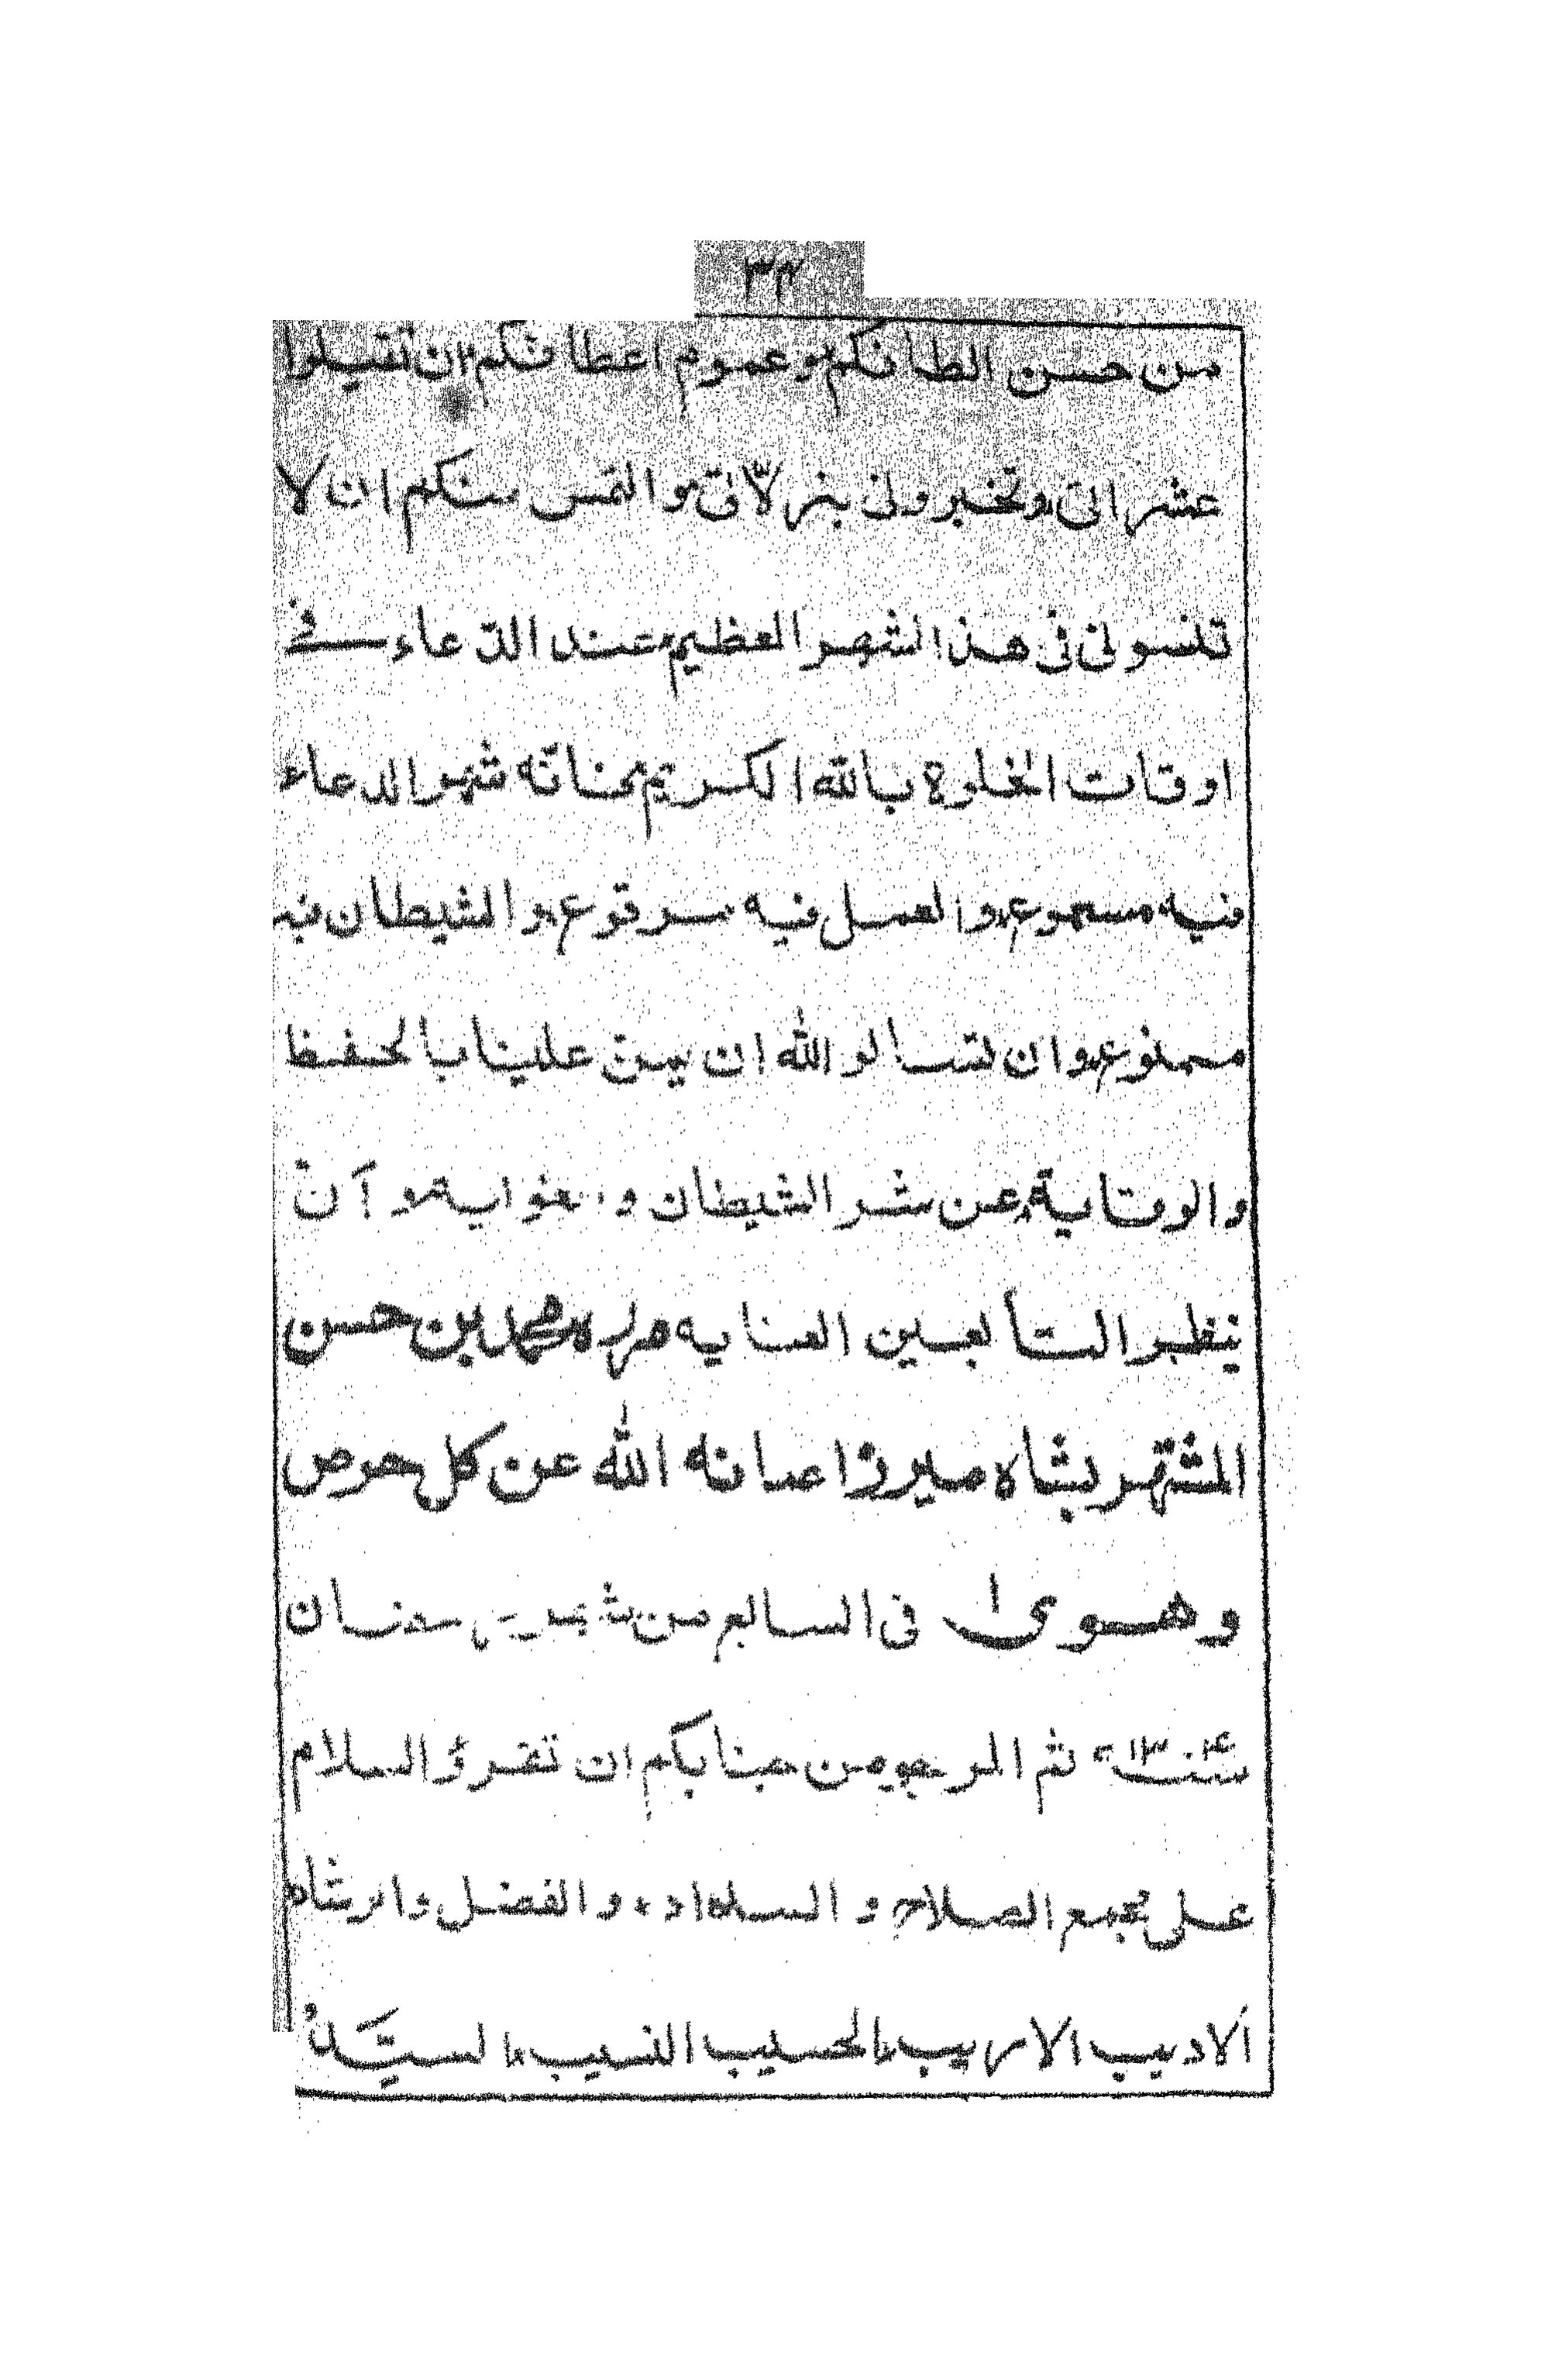 ٣٤
من حسن الطافكم وعموم اعطافكم ان تقيلوا
عشراتى وتخبرونى بزلاتى والتمس منكم ان لا
تنسونى فى هذا الشهر العظيم عند الدعاء فى
اوقات الخلوة بالله الكريم شهر الدعاء
فيه مسموع والعمل فيه مرفوع والشيطان فيه
ممنوع وان تسالو الله ان يمن علينا بالحفظ
والوقاية عن شر الشيطان و غوايه و آن
ينظر العناية محمد بن حسن
المشتهر بشاه ميرزا صانه الله عن كل حرص
وهوى فى السابع من شهر رمضان
سنة ثم المرجو من جنابكم ان تقرؤ السلام
على مجمع الصلاح و السداد و الفضل والرشاد
الاديب الاريب الحسيب النسيب السيّد